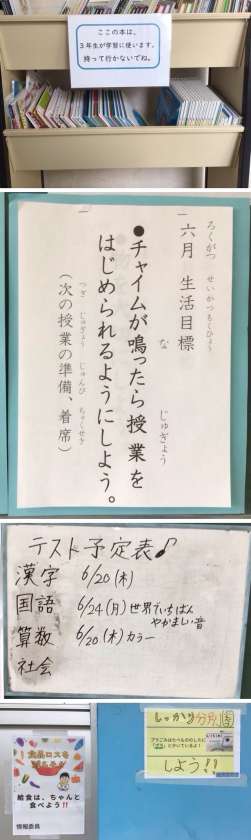 ここの本は、
3年生が学習に使います。
持って行かないでね。
六月 生活目標
ろくがつ せいかつもくひょう
●チャイムが鳴ったら授業を
な じゅぎょう
はじめられるようにしよう。
(次の授業の準備、着席)
つぎ じゅぎょう じゅんび ちゃくせき
テスト予定表♪
漢字 6/20(木)
国語 6/24(月)世界でいちばん
やかましい音
算数 6/20(木)カラー
社会
食品ロスを
給食は、ちゃんと
食べよう!!
情報委員
しっかり分別
しよう!!